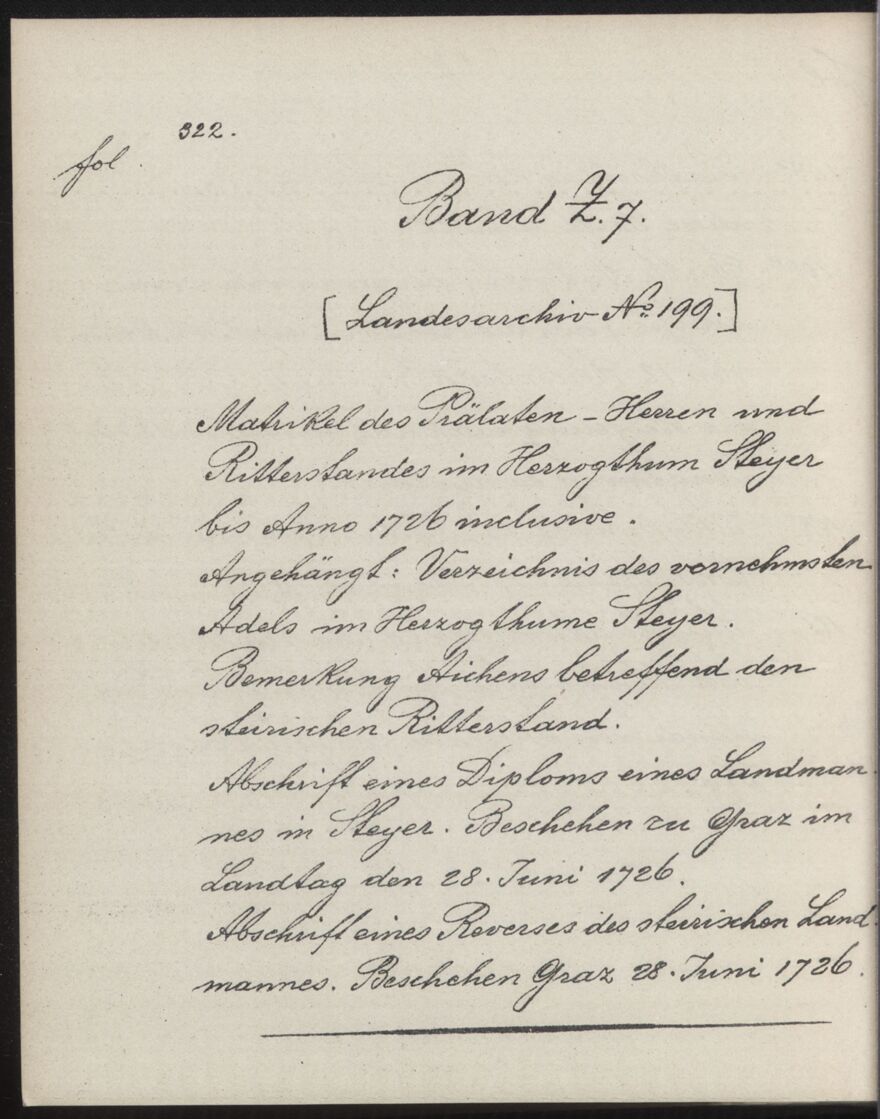 322.
fol.
Band Z. 7.
[Landesarchiv No. 199.]
Matrikel des Prälaten - Herren und
Ritterstandes im Herzogthum Steyer
bis Anno 1726 inclusive.
Angehängt: Verzeichnis des vornehmsten
Adels im Herzogthume Steyer.
Bemerkung Aichens betreffend den
steirischen Ritterstand.
Abschrift eines Diploms eines Landman-
nes in Steyer. Beschehen zu Graz im
Landtag den 28. Juni 1726.
Abschrift eines Reverses des steirischen Land-
mannes. Beschehen Graz 28. Juni 1726.